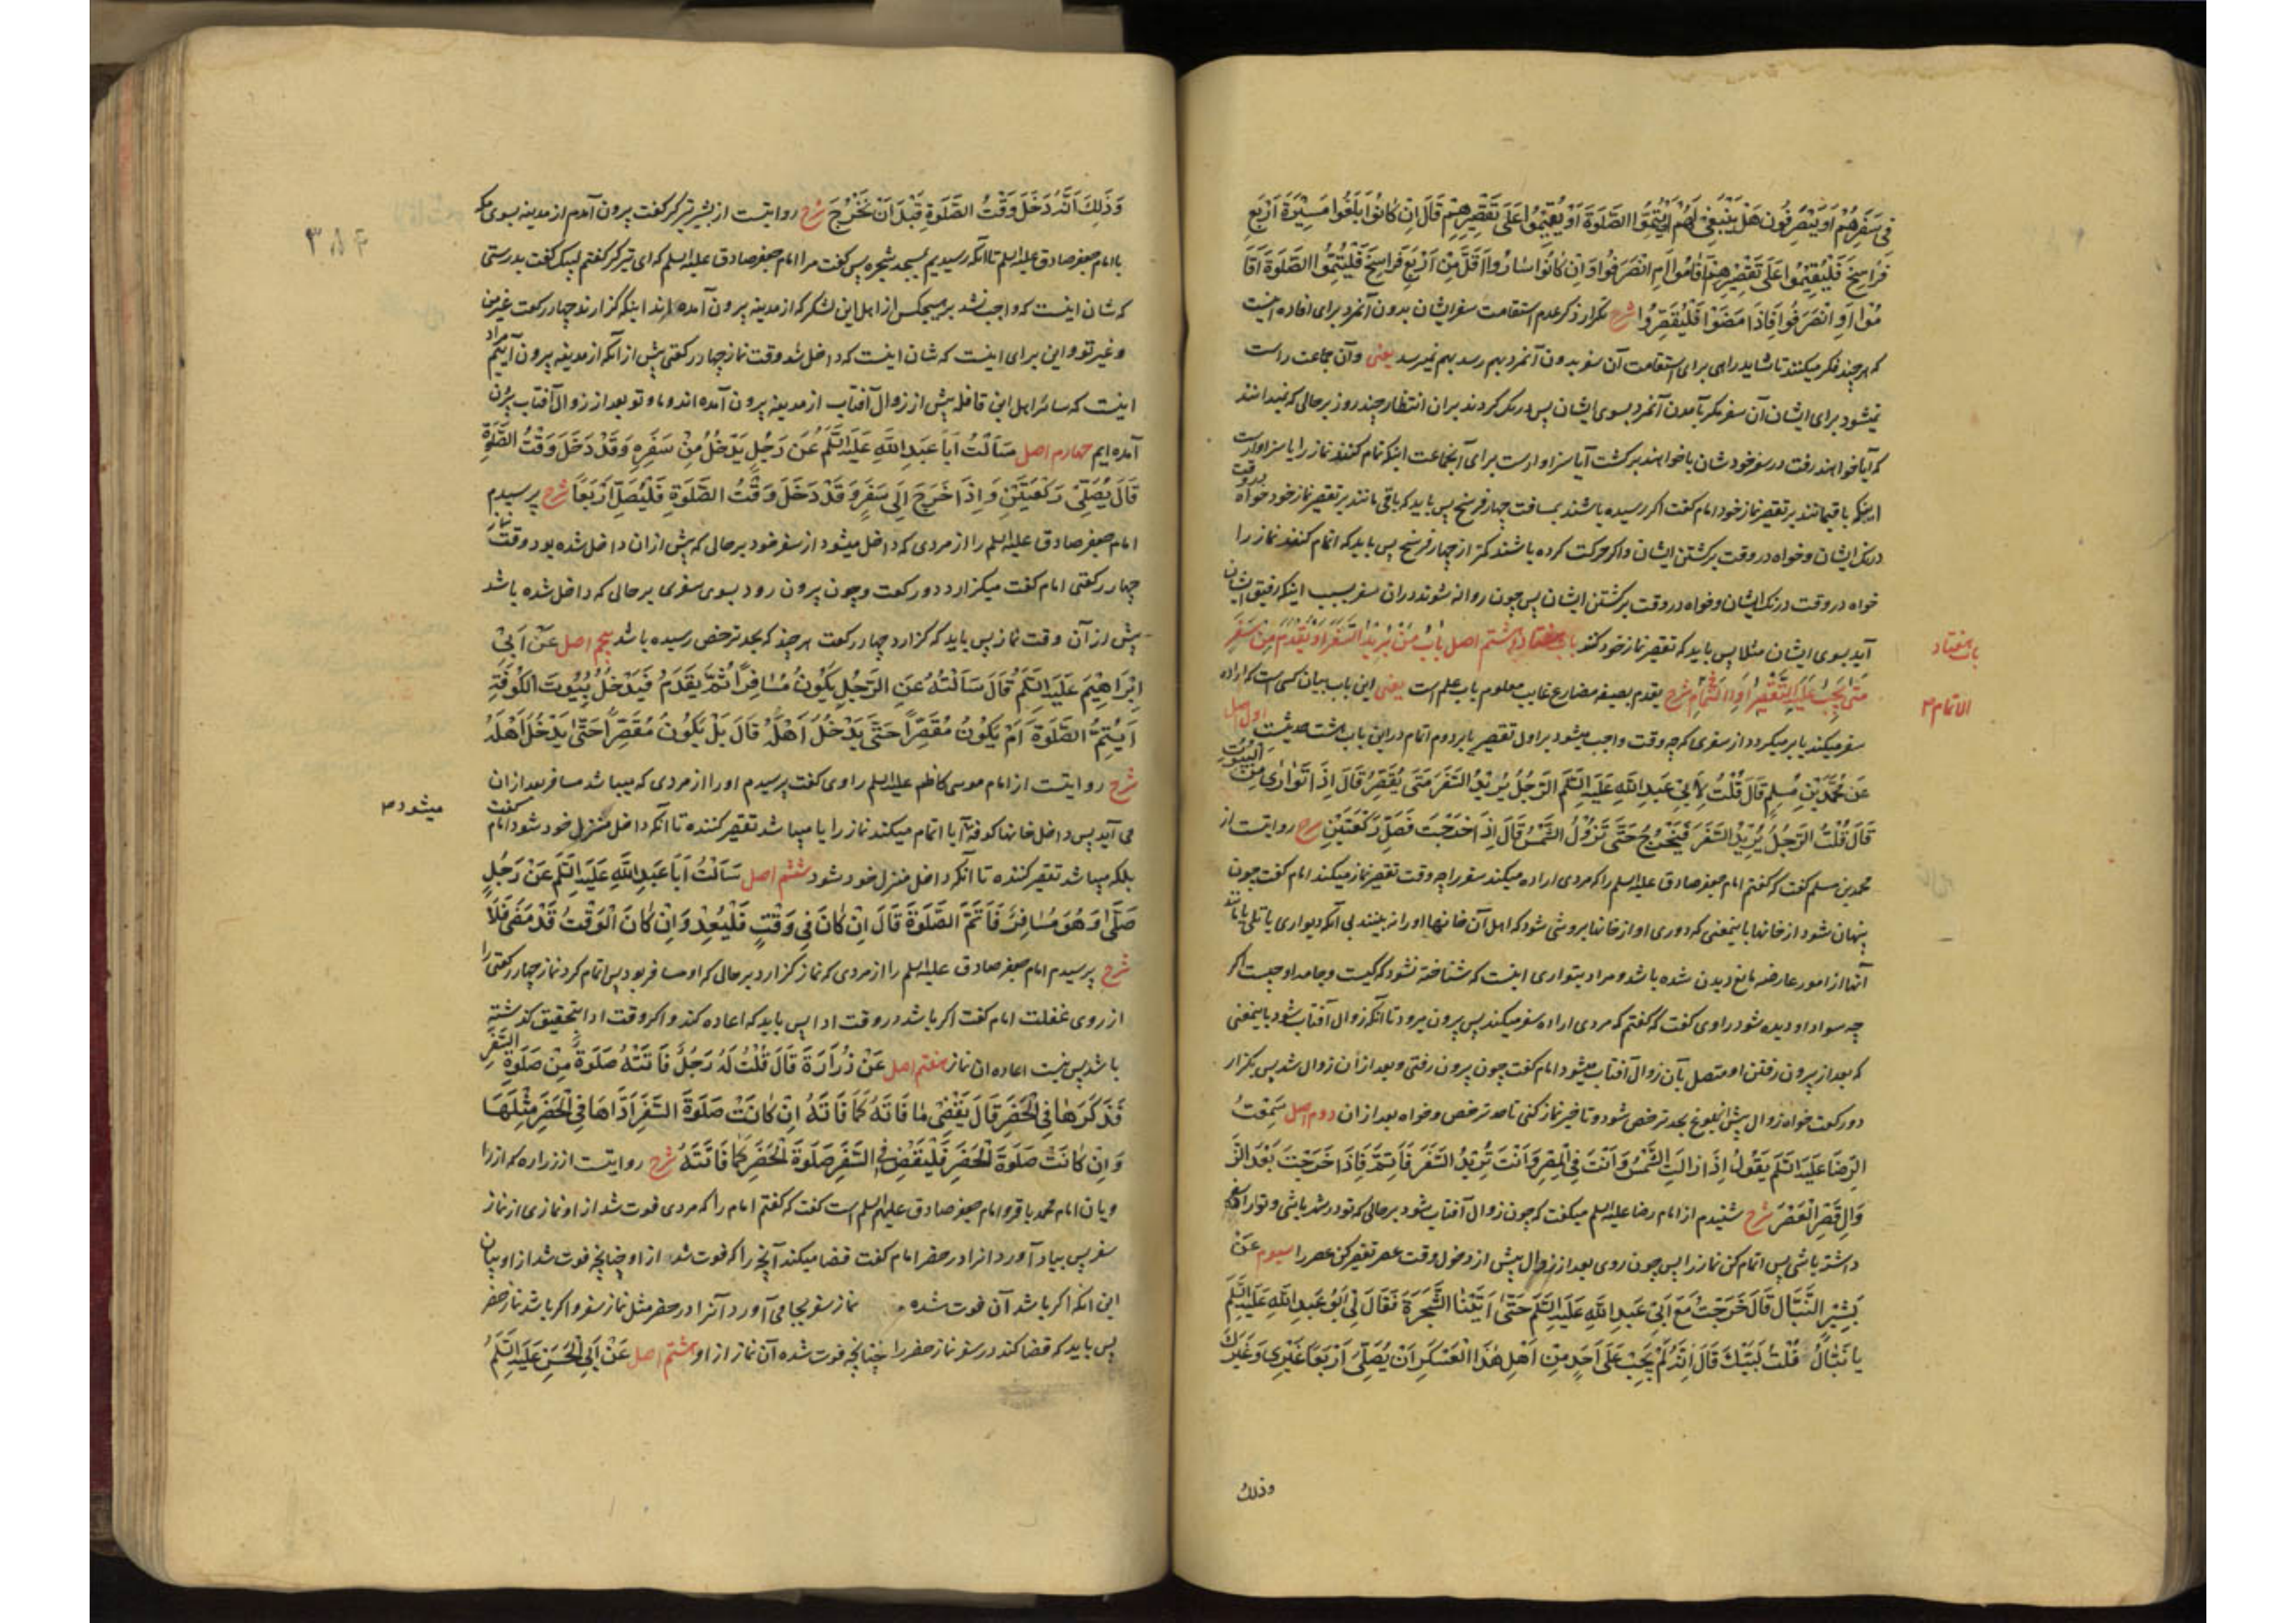 فِی سَفَرِهِمْ اَوْ یَنْصَرِفُونَ هَلْ یَنْبَغِی لَهُمْ اَنْ یُتِمُّوا الصَّلَوةَ اَوْ یُقِیمُوا عَلَی تَقْصِیرِهِمْ قَالَ اِنْ کَانُوا بَلَغُوا مَسِیْرَةَ اَرْبَعِ
فَرَاسِخَ فَلْیُقِیْمُوا عَلَی تَقْصِیْرِهِمْ اَقَامُوا اَمِ انْصَرَفُوا وَاِنْ کَانُوا سَارُوا اَقَلَّ مِنْ اَرْبَعِ فَرَاسِخَ فَلْیُتِمُّوا الصَّلَوةَ اَقَا
مُوْا اَوِ انْصَرَفُوا فَاِذَا مَضَوْا فَلْیُقَصِّرُوا شرح تکرار ذکر عدم استقامت سفر ایشان بدون آنمرد برای افاده اینست
که هر چند فکر میکنند تا شاید راهی برای استقامت آن سفر بدون آنمرد بهم رسد بهم نمیرسد یعنی وآن جماعت راست
نمیشود برای ایشان آن سفر مگر بآمدن آنمرد بسوی ایشان پس درنگ کردند بران انتظار چند روز بر حالی که نمیدانند
که آیا خواهند رفت در سفر خود شان یا خواهند برگشت آیا سزاوارست برای آنجماعت اینکه تمام کنند نماز را یا سزاوارست
اینکه باقیمانند بر تقصیر نماز خود امام گفت اکر رسیده باشند بمسافت چهار فرسخ پس باید که باقی مانند بر تقصیر نماز خود خواه در وقت
درنک ایشان وخواه در وقت برگشتن ایشان واکر حرکت کرده باشند کمتر از چهار فرسخ پس باید که اتمام کنند نماز را
خواه در وقت درنک ایشان وخواه در وقت برگشتن ایشان پس چون روانه شوند دران سفر بسبب اینکه رفیق ایشان
آید بسوی ایشان مثلا پس باید که تقصیر نماز خود کند باب هفتاد وهشتم اصل بَابُ مَنْ یُرِیدُ السَّفَرَ اَوْ یَقْدَمُ مِنْ سَفَرٍ
باب هفتاد
مَتَی یَجِبُ عَلَیْهِ التَّقْصِیْرُ اَوِ التَّمَامُ شرح یقدم بصیغه مضارع غایب معلوم باب علم است یعنی این باب بیان کسی است که اراده
الاتمام
سفر میکند یا بر میکردد از سفری که چه وقت واجب میشود بر اول تقصیر یا بر دوم اتمام در این باب هشت حدیثست اول اصل
عَنْ مُحَمَّدِ بْنِ مُسْلِمٍ قَالَ قُلْتُ لِاَبِیْ عَبْدِ اللَّهِ عَلَیْهِ السَّلَمُ الرَّجُلُ یُرِیْدُ السَّفَرَ مَتَی یُقَصِّرُ قَالَ اِذَا تَوَارَی مِنَ الْبُیُوتِ
قَالَ قُلْتُ الرَّجُلُ یُرِیْدُ السَّفَرَ فَیَخْرُجُ حَتَّی تَزُوْلُ الشَّمْسُ قَالَ اِذَا خَرَجْتَ فَصَلِّ رَکْعَتَیْنِ شرح روایتست از
محمد بن مسلم گفت که گفتم امام جعفر صادق علیه السلم را که مردی اراده میکند سفر را چه وقت تقصیر نماز میکند امام گفت چون
پنهان شود از خانها باینمعنی که دوری او از خانها بروشی شود که اهل آن خانها او را نه بینند بی آنکه دیواری یا تلی یا مانند
آنها از امور عارضه مانع دیدن شده باشد ومراد بتواری اینست که شناخته نشود که کیست وجامه او چیست اکر
چه سواد او دیده شود راوی گفت که گفتم که مردی اراده سفر میکند پس بیرون میرود تا آنکه زوال آفتاب شود باینمعنی
که بعد از بیرون رفتن او متصل بآن زوال آفتاب میشود امام گفت چون بیرون رفتی وبعد ازان زوال شد پس بکزار
دو رکعت خواه زوال پیش از بلوغ بحد ترخص شود وتاخیر نماز کنی تا حد ترخص وخواه بعد ازان دوم اصل سَمِعْتُ
الرِّضَا عَلَیْهِ السَّلَمُ یَقُولُ اِذَا زَالَتِ الشَّمْسُ وَاَنْتَ فِی الْمِصْرِ وَاَنْتَ تُرِیْدُ السَّفَرَ فَاَتِمَّ فَاِذَا خَرَجْتَ بَعْدَ الزَّ
وَالِ قَصِّرِ الْعَصْرَ شرح شنیدم از امام رضا علیه السلم میکفت که چون زوال آفتاب شود بر حالی که تو در شهر باشی وتو اراده سفر
داشته باشی پس اتمام کن نماز را پس چون روی بعد از زوال پیش از دخول وقت عصر تقصیر کن عصر را سیوم عَنْ
بَشِیْرٍ النَّبَّالِ قَالَ خَرَجْتُ مَعَ اَبِیْ عَبْدِ اللَّهِ عَلَیْهِ السَّلَمُ حَتَّی اَتَیْنَا الشَّجَرَةَ فَقَالَ لِیْ اَبُو عَبْدِ اللَّهِ عَلَیْهِ السَّلَمُ
یَا نَبَّالُ قُلْتُ لَبَّیْكَ قَالَ اِنَّهُ لَمْ یَجِبْ عَلَی اَحَدٍ مِنْ اَهْلِ هٰذَا الْعَسْکَرِ اَنْ یُصَلِّیَ اَرْبَعًا غَیْرِی وَغَیْرَكَ
وذلك
وَذَلِكَ اَنَّهُ دَخَلَ وَقْتُ الصَّلَوةِ قَبْلَ اَنْ نَخْرُجَ شرح روایتست از بشیر تیرگر گفت بیرون آمدم از مدینه بسوی مکه
۳۸۴
با امام جعفر صادق علیه السلم تا آنکه رسیدیم بمسجد شجره پس گفت مرا امام جعفر صادق علیه السلم که ای تیرکر گفتم لبیک گفت بدرستی
که شان اینست که واجب نشد بر هیچکس از اهل این لشکر که از مدینه بیرون آمده اند اینکه گزارند چهار رکعت غیر من
وغیر تو واین برای اینست که شان اینست که داخل شد وقت نماز چهار رکعتی پیش از آنکه از مدینه بیرون آییم مراد
اینست که سائر اهل این قافله پیش از زوال آفتاب از مدینه بیرون آمده اند وما وتو بعد از زوال آفتاب بیرون
آمده ایم چهارم اصل سَاَلْتُ اَبَا عَبْدِ اللَّهِ عَلَیْهِ السَّلَمُ عَنْ رَجُلٍ یَدْخُلُ مِنْ سَفَرِهِ وَقَدْ دَخَلَ وَقْتُ الصَّلَوةِ
قَالَ یُصَلِّیْ رَکْعَتَیْنِ وَاِذَا خَرَجَ اِلَی سَفَرٍ وَقَدْ دَخَلَ وَقْتُ الصَّلَوةِ فَلْیُصَلِّ اَرْبَعًا شرح پرسیدم
امام جعفر صادق علیه السلم را از مردی که داخل میشود از سفر خود بر حالی که پیش ازان داخل شده بود وقت نماز
چهار رکعتی امام گفت میکزارد دو رکعت وچون بیرون رود بسوی سفری بر حالی که داخل شده باشد
پیش از آن وقت نماز پس باید که گزارد چهار رکعت هر چند که بحد ترخص رسیده باشد پنجم اصل عَنْ اَبِیْ
اِبْرَاهِیْمَ عَلَیْهِ السَّلَمُ قَالَ سَاَلْتُهُ عَنِ الرَّجُلِ یَکُوْنُ مُسَافِرًا ثُمَّ یَقْدَمُ فَیَدْخُلُ بُیُوتَ الْکُوْفَةِ
اَیُتِمُّ الصَّلَوةَ اَمْ یَکُوْنُ مُقَصِّرًا حَتَّی یَدْخُلَ اَهْلَهُ قَالَ بَلْ یَکُونُ مُقَصِّرًا حَتَّی یَدْخُلَ اَهْلَهُ
شرح روایتست از امام موسی کاظم علیه السلم راوی گفت پرسیدم او را از مردی که میباشد مسافر بعد ازان
می آید پس داخل خانها کوفه آیا اتمام میکند نماز را یا میباشد تقصیر کننده تا آنکه داخل منزل خود شود امام گفت
میشود
بلکه میباشد تقصیر کننده تا آنکه داخل منزل خود شود ششم اصل سَاَلْتُ اَبَا عَبْدِ اللَّهِ عَلَیْهِ السَّلَمُ عَنْ رَجُلٍ
صَلَّی وَهُوَ مُسَافِرٌ فَاَتَمَّ الصَّلَوةَ قَالَ اِنْ کَانَ فِی وَقْتٍ فَلْیُعِدْ وَاِنْ کَانَ الْوَقْتُ قَدْ مَضَی فَلَا
شرح پرسیدم امام جعفر صادق علیه السلم را از مردی که نماز کزارد بر حالی که او مسافر بود پس اتمام کرد نماز چهار رکعتی را
از روی غفلت امام گفت اکر باشد در وقت ادا پس باید که اعاده کند واکر وقت ادا بتحقیق گذشته
باشد پس نیست اعاده ان نماز هفتم اصل عَنْ زُرَارَةَ قَالَ قُلْتُ لَهُ رَجُلٌ فَاتَتْهُ صَلَوةٌ مِنْ صَلَوةِ السَّفَرِ
فَذَکَرَهَا فِی الْحَضَرِ قَالَ یَقْضِیْ مَا فَاتَهُ کَمَا فَاتَهُ اِنْ کَانَتْ صَلَوةَ السَّفَرِ اَدَّاهَا فِی الْحَضَرِ مِثْلَهَا
وَاِنْ کَانَتْ صَلَوةَ الْحَضَرِ فَلْیَقْضِ فِی السَّفَرِ صَلَوةَ الْحَضَرِ کَمَا فَاتَتْهُ شرح روایتست از زراره که از را
ویان امام محمد باقر وامام جعفر صادق علیهم السلم است گفت که گفتم امام را که مردی فوت شد از او نمازی از نماز
سفر پس بیاد آورد انرا در حضر امام گفت قضا میکند آنچه را که فوت شد از او چنانچه فوت شد از او بیان
این انکه اکر باشد آن فوت شده نماز سفر بجا می آورد آنرا در حضر مثل نماز سفر واکر باشد نماز حضر
پس باید که قضا کند در سفر نماز حضر را چنانچه فوت شده آن نماز از او هشتم اصل عَنْ اَبِی الْحَسَنِ عَلَیْهِ السَّلَمُ